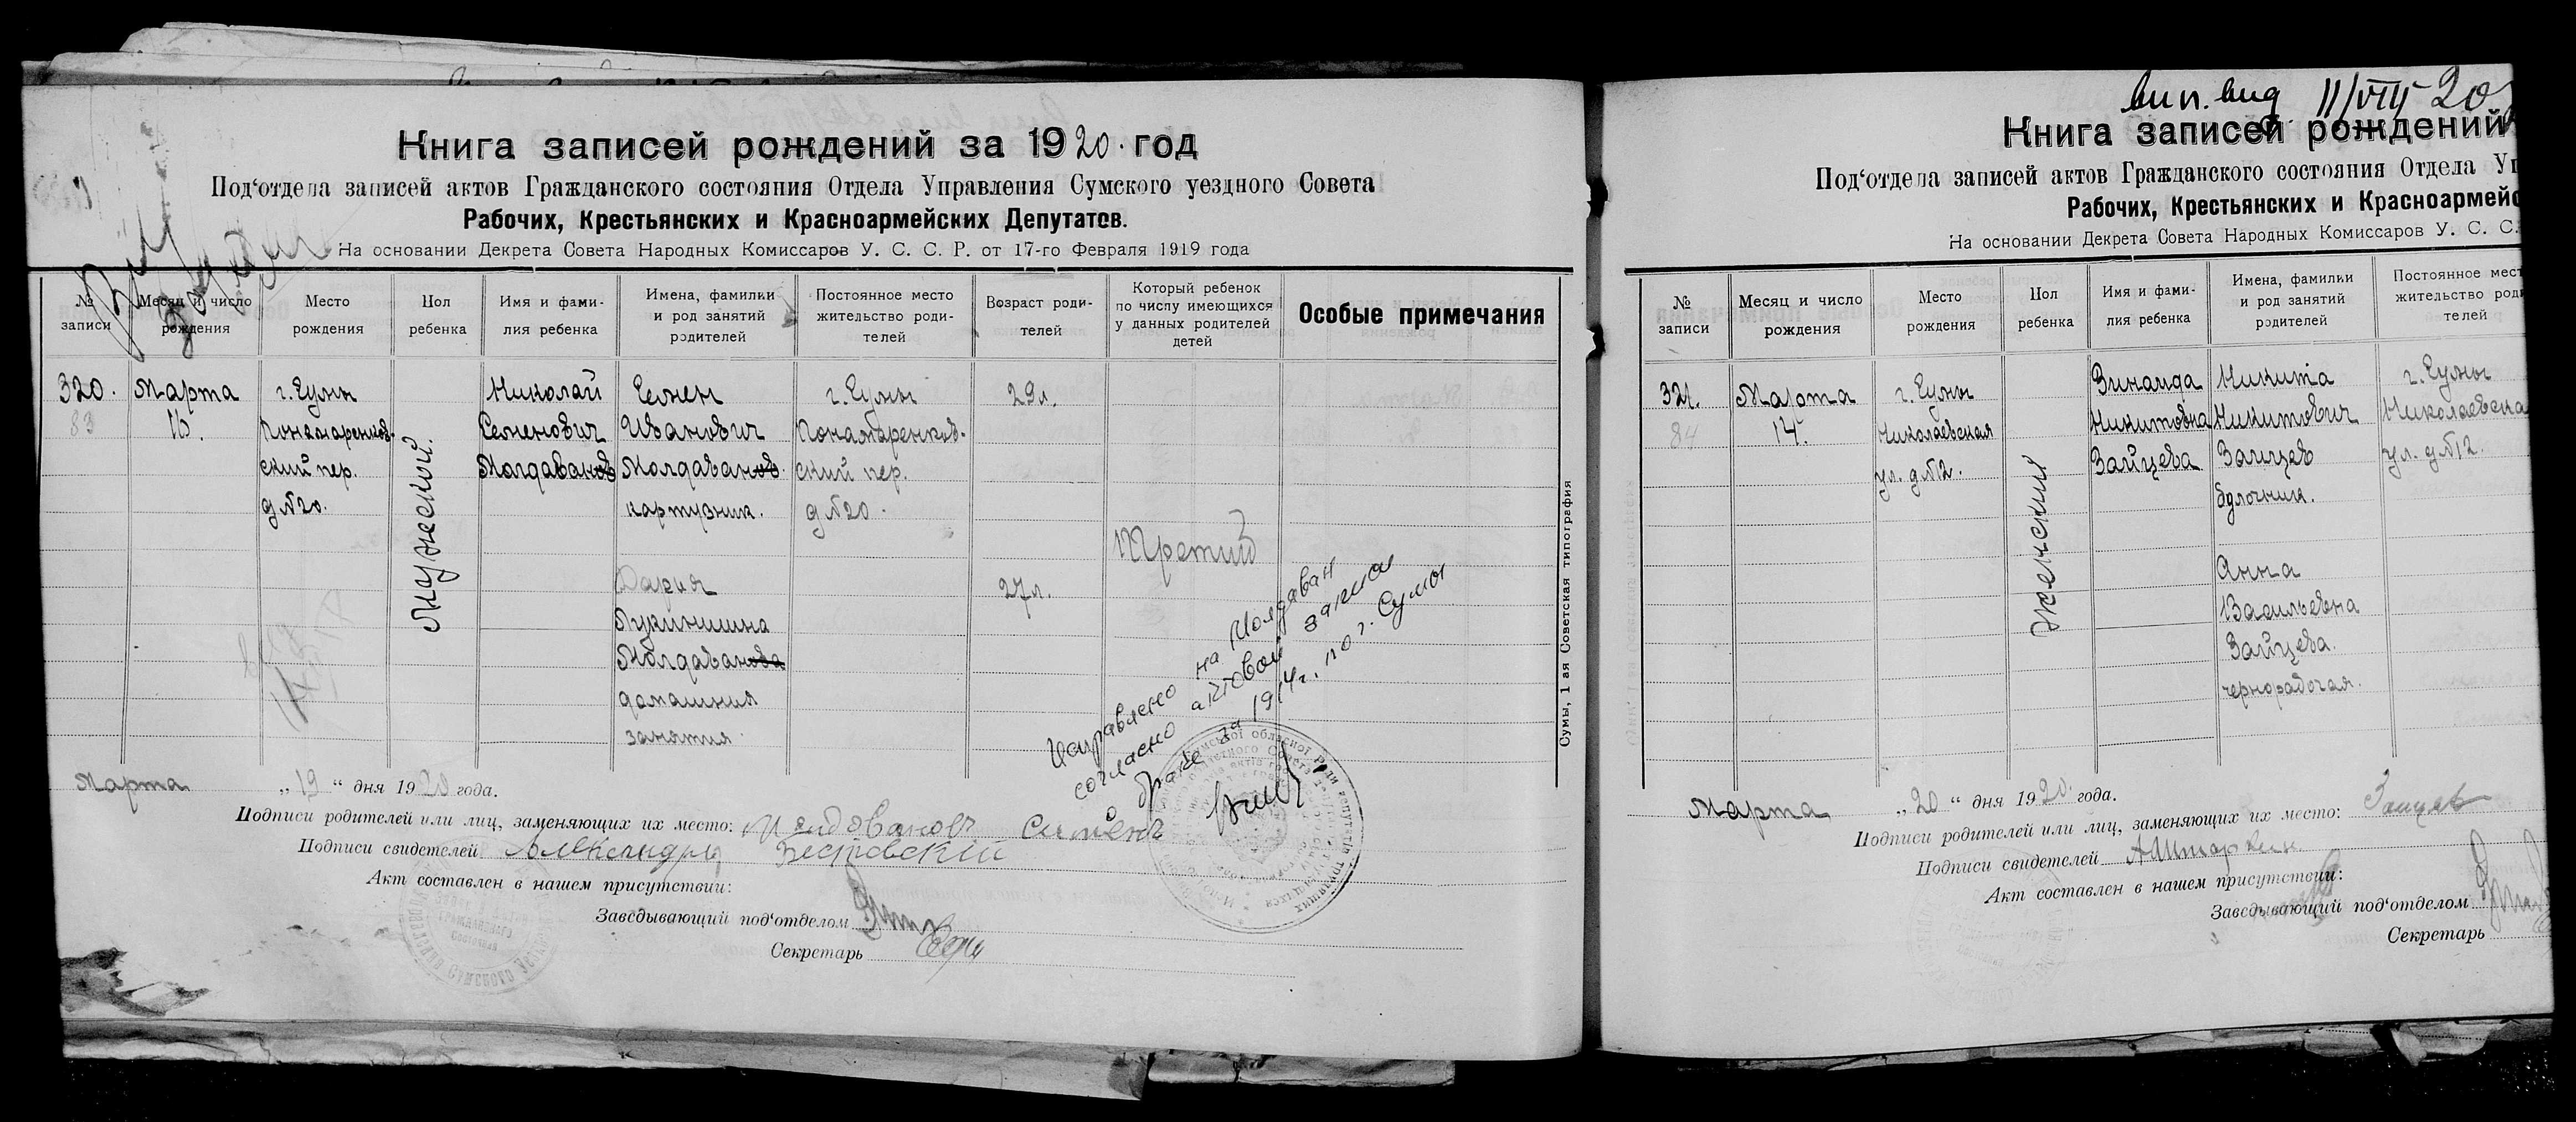 Книга записей рождений за 1920. год
Под‘отдела записей актов Гражданского состояния Отдела Управления Сумского уездного Совета
Рабочих, Крестьянских и Красноармейских Депутатов.
На основании Декрета Совета Народных Комиссаров У. С. С. Р. от 17-го Февраля 1919 года
№ записи
Месяц и число рождения
Место рождения
Пол ребенка
Имя и фами-
лия ребенка
Имена, фамилии
и род занятий
родителей
Постоянное место
жительство роди-
телей
Возраст роди-
телей
Который ребенок
по числу имеющихся
у данных родителей
детей
Особые примечания
320.
83
Марта
16.
г. Сумы
Понамаренков-
ский пер.
д № 20.
Мужеской.
Николай
Семенович
Молдаванов
Семен
Иванович
Молдаванов
картузник.
Дария
Лукинишна
Молдаванова
домашния
занятия.
г. Сумы
Понамаренков-
ский пер.
д № 20.
29 л.
27 л.
Третий
Исправлено на Молдаван
согласно актовой записи
браке за 1914 г. по г. Сумы
Сумы, 1 ая Советская типография
Марта „19“ дня 1920 года.
Подписи родителей или лиц, заменяющих их место: Молдовановъ Симёнъ
Подписи свидетелей Александръ
Акт составлен в нашем присутствии:
Заведывающий под‘отделом
Секретарь
11/VIII 20
Книга записей рождений
Под‘отдела записей актов Гражданского состояния Отдела Уп
Рабочих, Крестьянских и Красноармейс
На основании Декрета Совета Народных Комиссаров У. С. С.
№ записи
Месяц и число рождения
Место рождения
Пол ребенка
Имя и фами-
лия ребенка
Имена, фамилии
и род занятий
родителей
Постоянное мест
жительство роди
телей
321.
84
Марта
14.
г. Сумы
Николаевская
ул. д № 12.
Женский
Зинаида
Никитовна
Зайцева
Никита
Никитович
Зайцев
булочник.
Анна
Васильевна
Зайцева.
чернорабочая.
г. Сумы
Николаевска
ул. д № 12.
Марта „20“ дня 1920. года.
Подписи родителей или лиц, заменяющих их место: Зайцев
Подписи свидетелей
Акт составлен в нашем присутствии:
Заведывающий под‘отделом
Секретарь